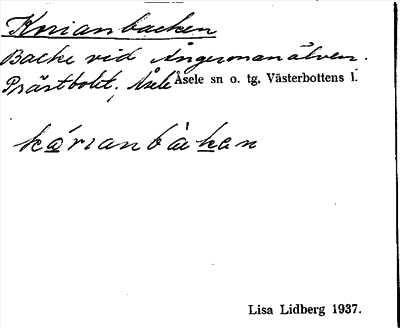 Knrianbacken
Backe vid Ångermanälven.
Prästbolet, Åsele Åsele sn o. tg. Västerbottens l.
kárianbàkan
Lisa Lidberg 1937.